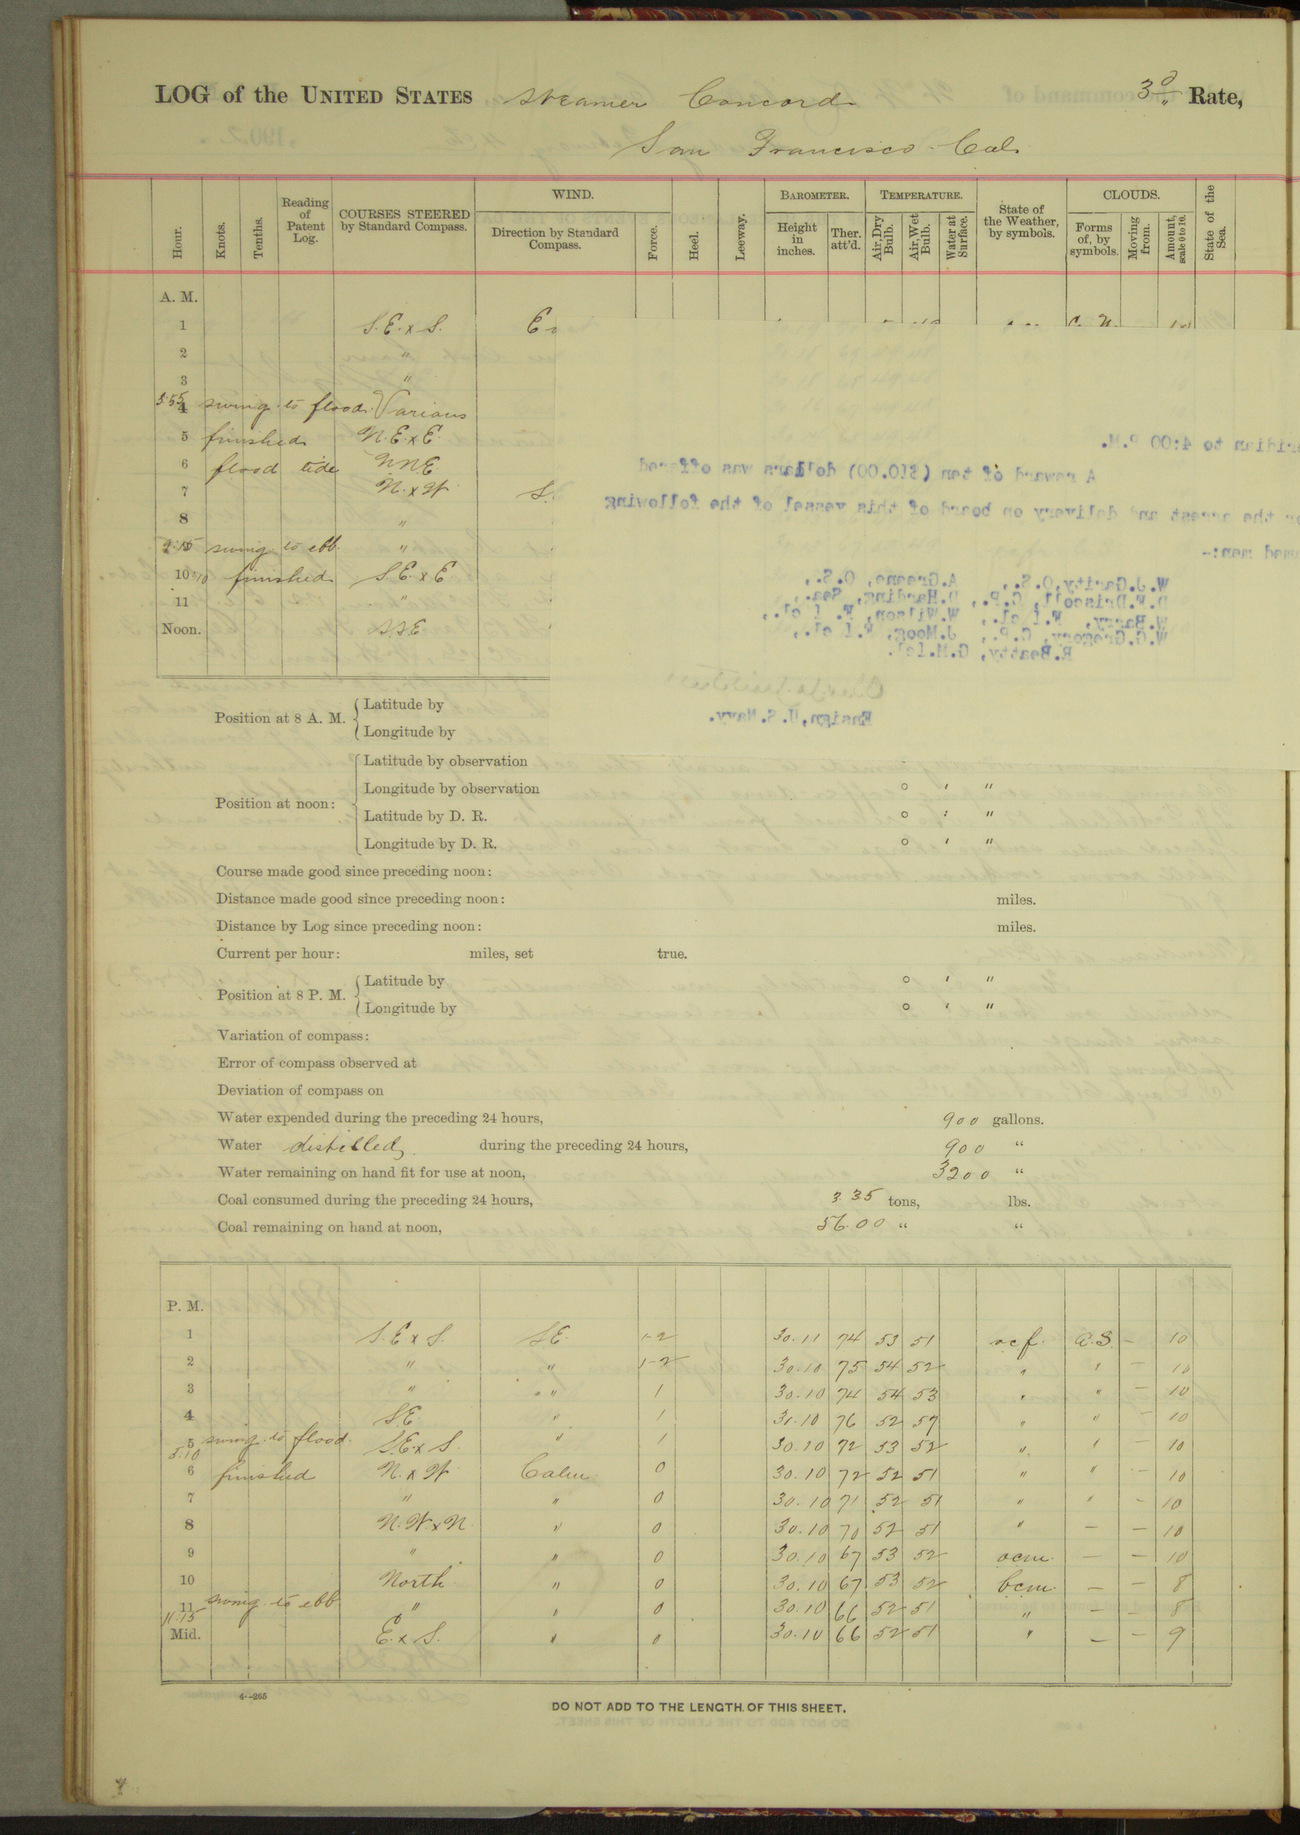 LOG of the UNITED STATES Steamer Concord 3d Rate,
San Francisco Cal.
Hour. Knots. Tenths. Reading of Patent Log. COURSES STEERED by Standard Compass. WIND. Direction by Standard Compass. Force. Heel. Leeway. BAROMETER. Height in inches. Ther. att'd. TEMPERATURE. Air, Dry Bulb. Air, Wet Bulb. Water at Surface. State of the Weather, by symbols. CLOUDS. Forms of, by symbols. Moving from. Amount, scale 0 to 10. State of the Sea.
A. M.
1 S.E. x S.
2 "
3 "
3:55 4 swing to flood Various
5 finished N.E. x E.
6 flood tide NNE
7 N. x W S.
8 "
9:15 swing to ebb "
10 finished S.E. x E
11 "
Noon. SSE
ridian to 4:00 P.M.
A reward of ten ($10.00) dollars was offered
or the arrest and delivery on board of this vessel of the following
named men:-
W.J.Garity,O.S., A.Greene, O.S.,
D.F.Driscoll, C.P., D.Harding, Sea.,
W.Barry, F.1 cl., W.Wilson, F. 1 cl.,
W.G.Gregory, C.P., J.Moog, F.1 cl.,
R.Beatty, G.M.1cl.
Ensign,U.S.Navy.
Position at 8 A. M. Latitude by
Longitude by
Position at noon: Latitude by observation
Longitude by observation ° ' "
Latitude by D. R. ° ' "
Longitude by D. R. ° ' "
Course made good since preceding noon:
Distance made good since preceding noon: miles.
Distance by Log since preceding noon: miles.
Current per hour: miles, set true.
Position at 8 P. M. Latitude by ° ' "
Longitude by ° ' "
Variation of compass:
Error of compass observed at
Deviation of compass on
Water expended during the preceding 24 hours, 900 gallons.
Water distilled during the preceding 24 hours, 900 "
Water remaining on hand fit for use at noon, 3200 "
Coal consumed during the preceding 24 hours, 3.35 tons, lbs.
Coal remaining on hand at noon, 56.00 " "
P. M.
1 S.E x S. SE. 1-2 30.11 74 53 51 ocf. A.S. - 10
2 " " 1-2 30.10 75 54 52 " " - 10
3 " " 1 30.10 74 54 53 " " - 10
4 S.E. " 1 30.10 76 52 51 " " - 10
5 5:10 swing to flood S.E x S. " 1 30.10 72 53 52 " " - 10
6 finished N. x W Calm 0 30.10 72 52 51 " " - 10
7 " " 0 30.10 71 52 51 " " - 10
8 N.W. x N. " 0 30.10 70 52 51 " - - 10
9 " " 0 30.10 67 53 52 ocm. - - 10
10 North " 0 30.10 67 53 52 bcm. - - 8
11 11:15 swing to ebb " " 0 30.10 66 52 51 " - - 8
Mid. E. x S. " 0 30.10 66 52 51 " - - 9
4--265
DO NOT ADD TO THE LENGTH OF THIS SHEET.